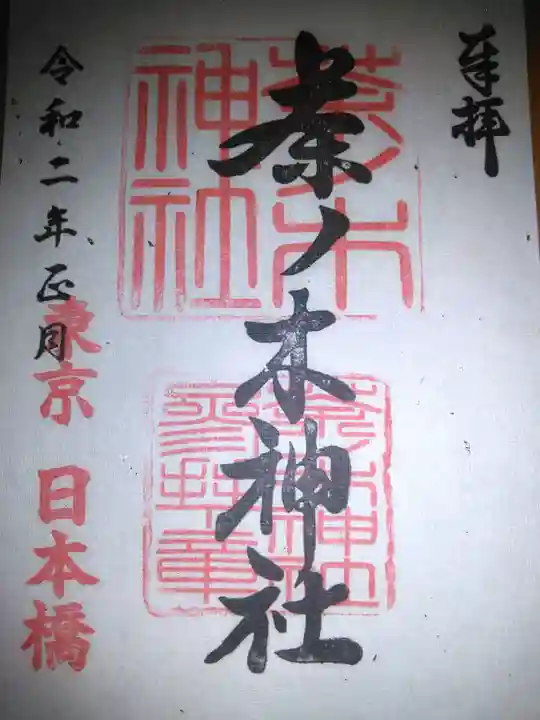 奉拝
茶ノ木神社
茶ノ木
神社
茶ノ木神社
参拝章
令和二年正月
東京 日本橋